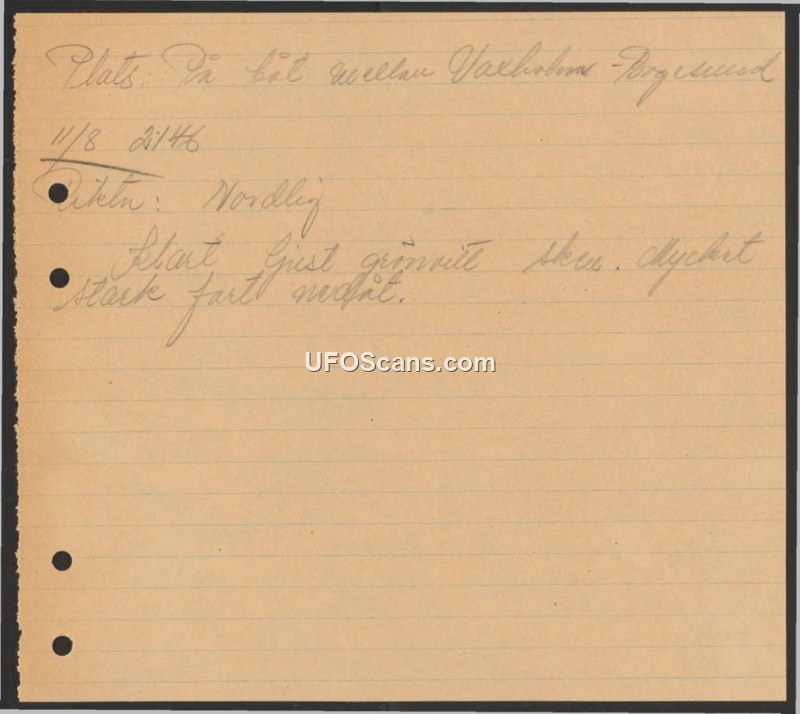 Plats: På båt mellan Vaxholm - Bogesund
11/8 2146
Riktn: Nordlig
Klart ljust grönvitt sken. Mycket
stark fart nedåt.
UFOScans.com